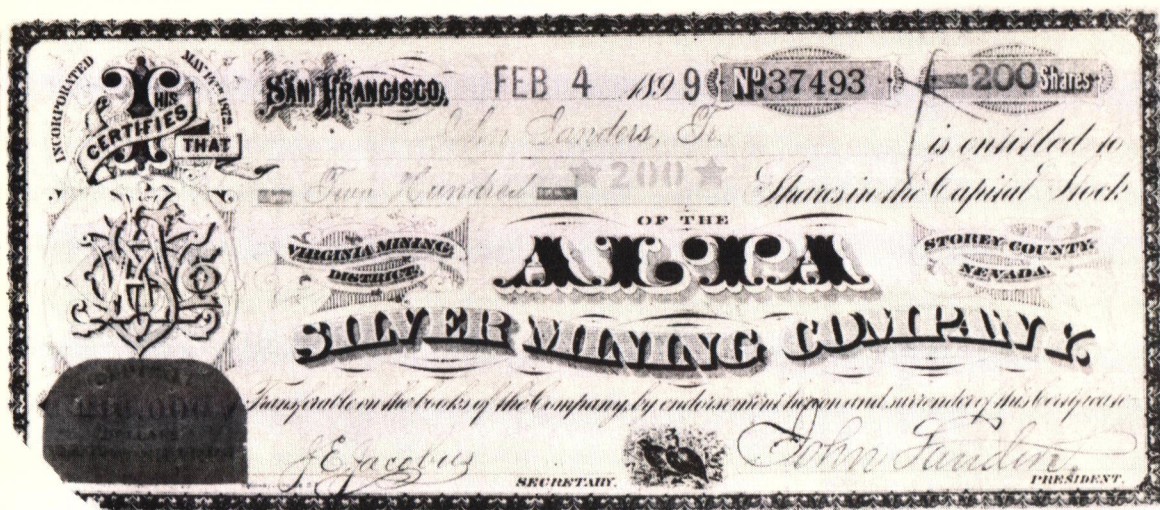 INCORPORATED MAY 14TH 1872
THIS CERTIFIES THAT
SAN FRANCISCO, FEB 4 1899 No. 37493 200 Shares
John Landers, Tr. is entitled to
Two Hundred ★ 200 ★ Shares in the Capital Stock
OF THE
VIRGINIA MINING DISTRICT. ALTA STOREY COUNTY, NEVADA
SILVER MINING COMPANY.
Transferable on the books of the Company, by endorsement hereon and surrender of this Certificate
DOLLARS
J.E. Jacobus SECRETARY. John Landers PRESIDENT.